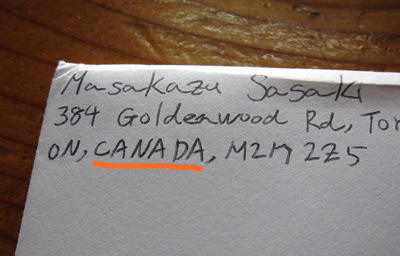 Masakazu Sasaki
384 Goldenwood Rd, Tor
ON, CANADA, M2M 2Z5